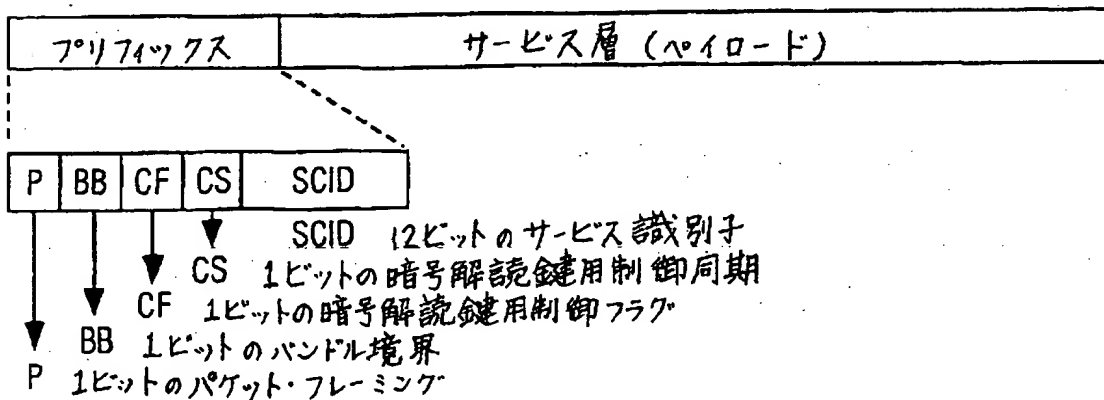 プリフィックス サービス層 (ペイロード)
P BB CF CS SCID
SCID 12ビットのサービス識別子
CS 1ビットの暗号解読鍵用制御同期
CF 1ビットの暗号解読鍵用制御フラグ
BB 1ビットのバンドル境界
P 1ビットのパケット・フレーミング